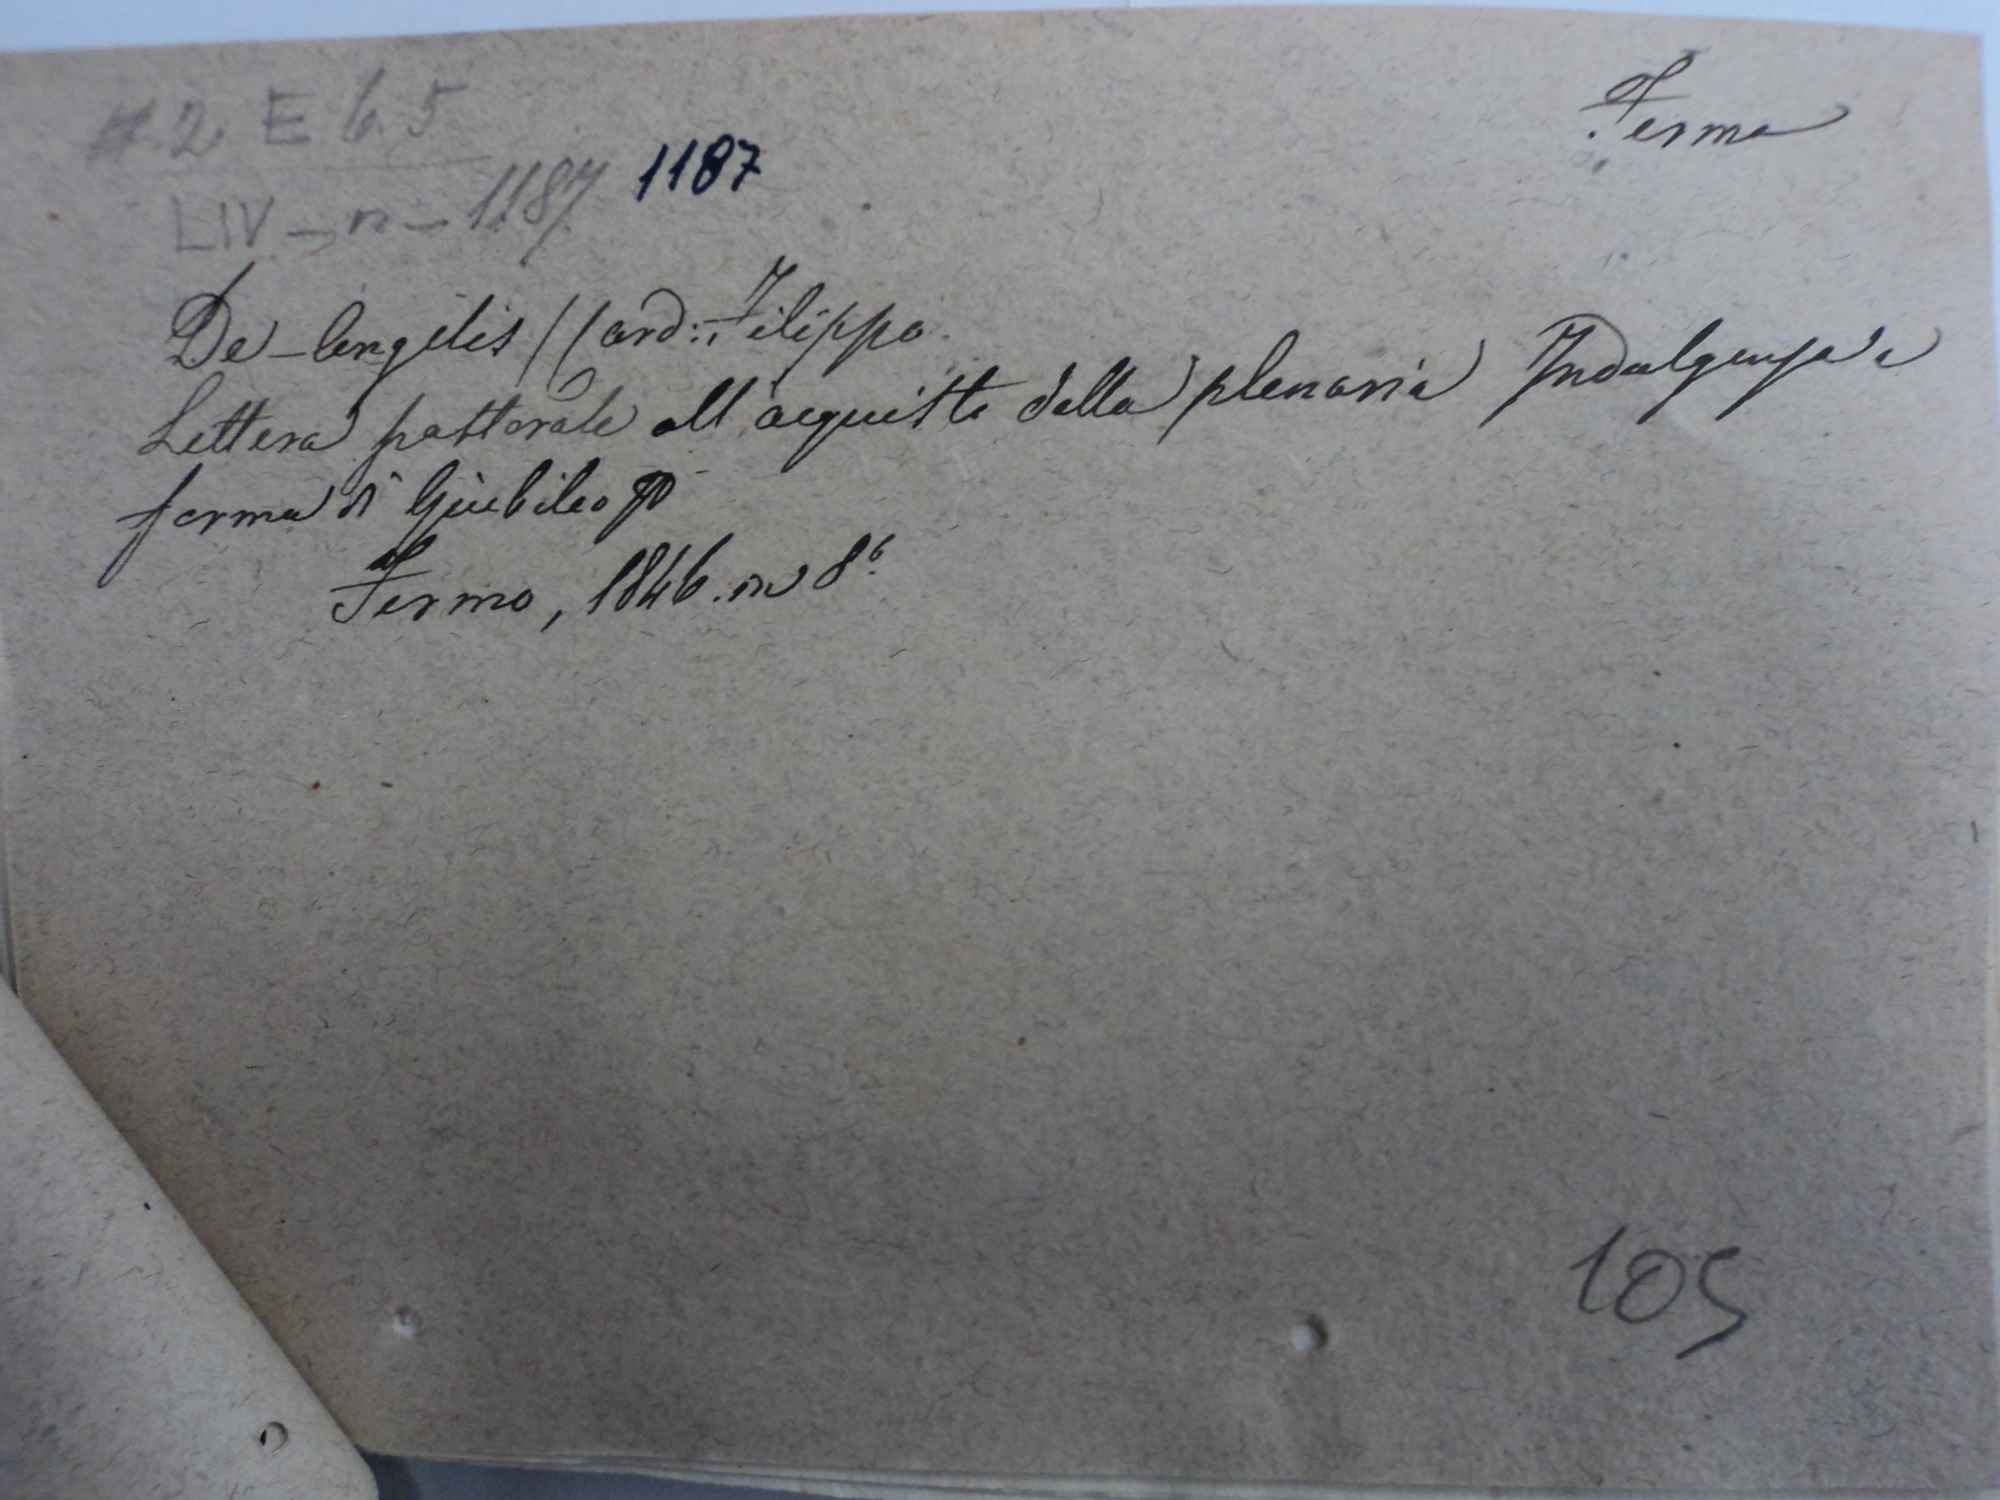 A.2 E 6.5
Fermo
LIV - n - 1187 1187
De-Angelis (Card: Filippo
Lettera pastorale all'acquisto della plenaria Indulgenza a
forma di Giubileo
Fermo, 1846. in 8°.
105